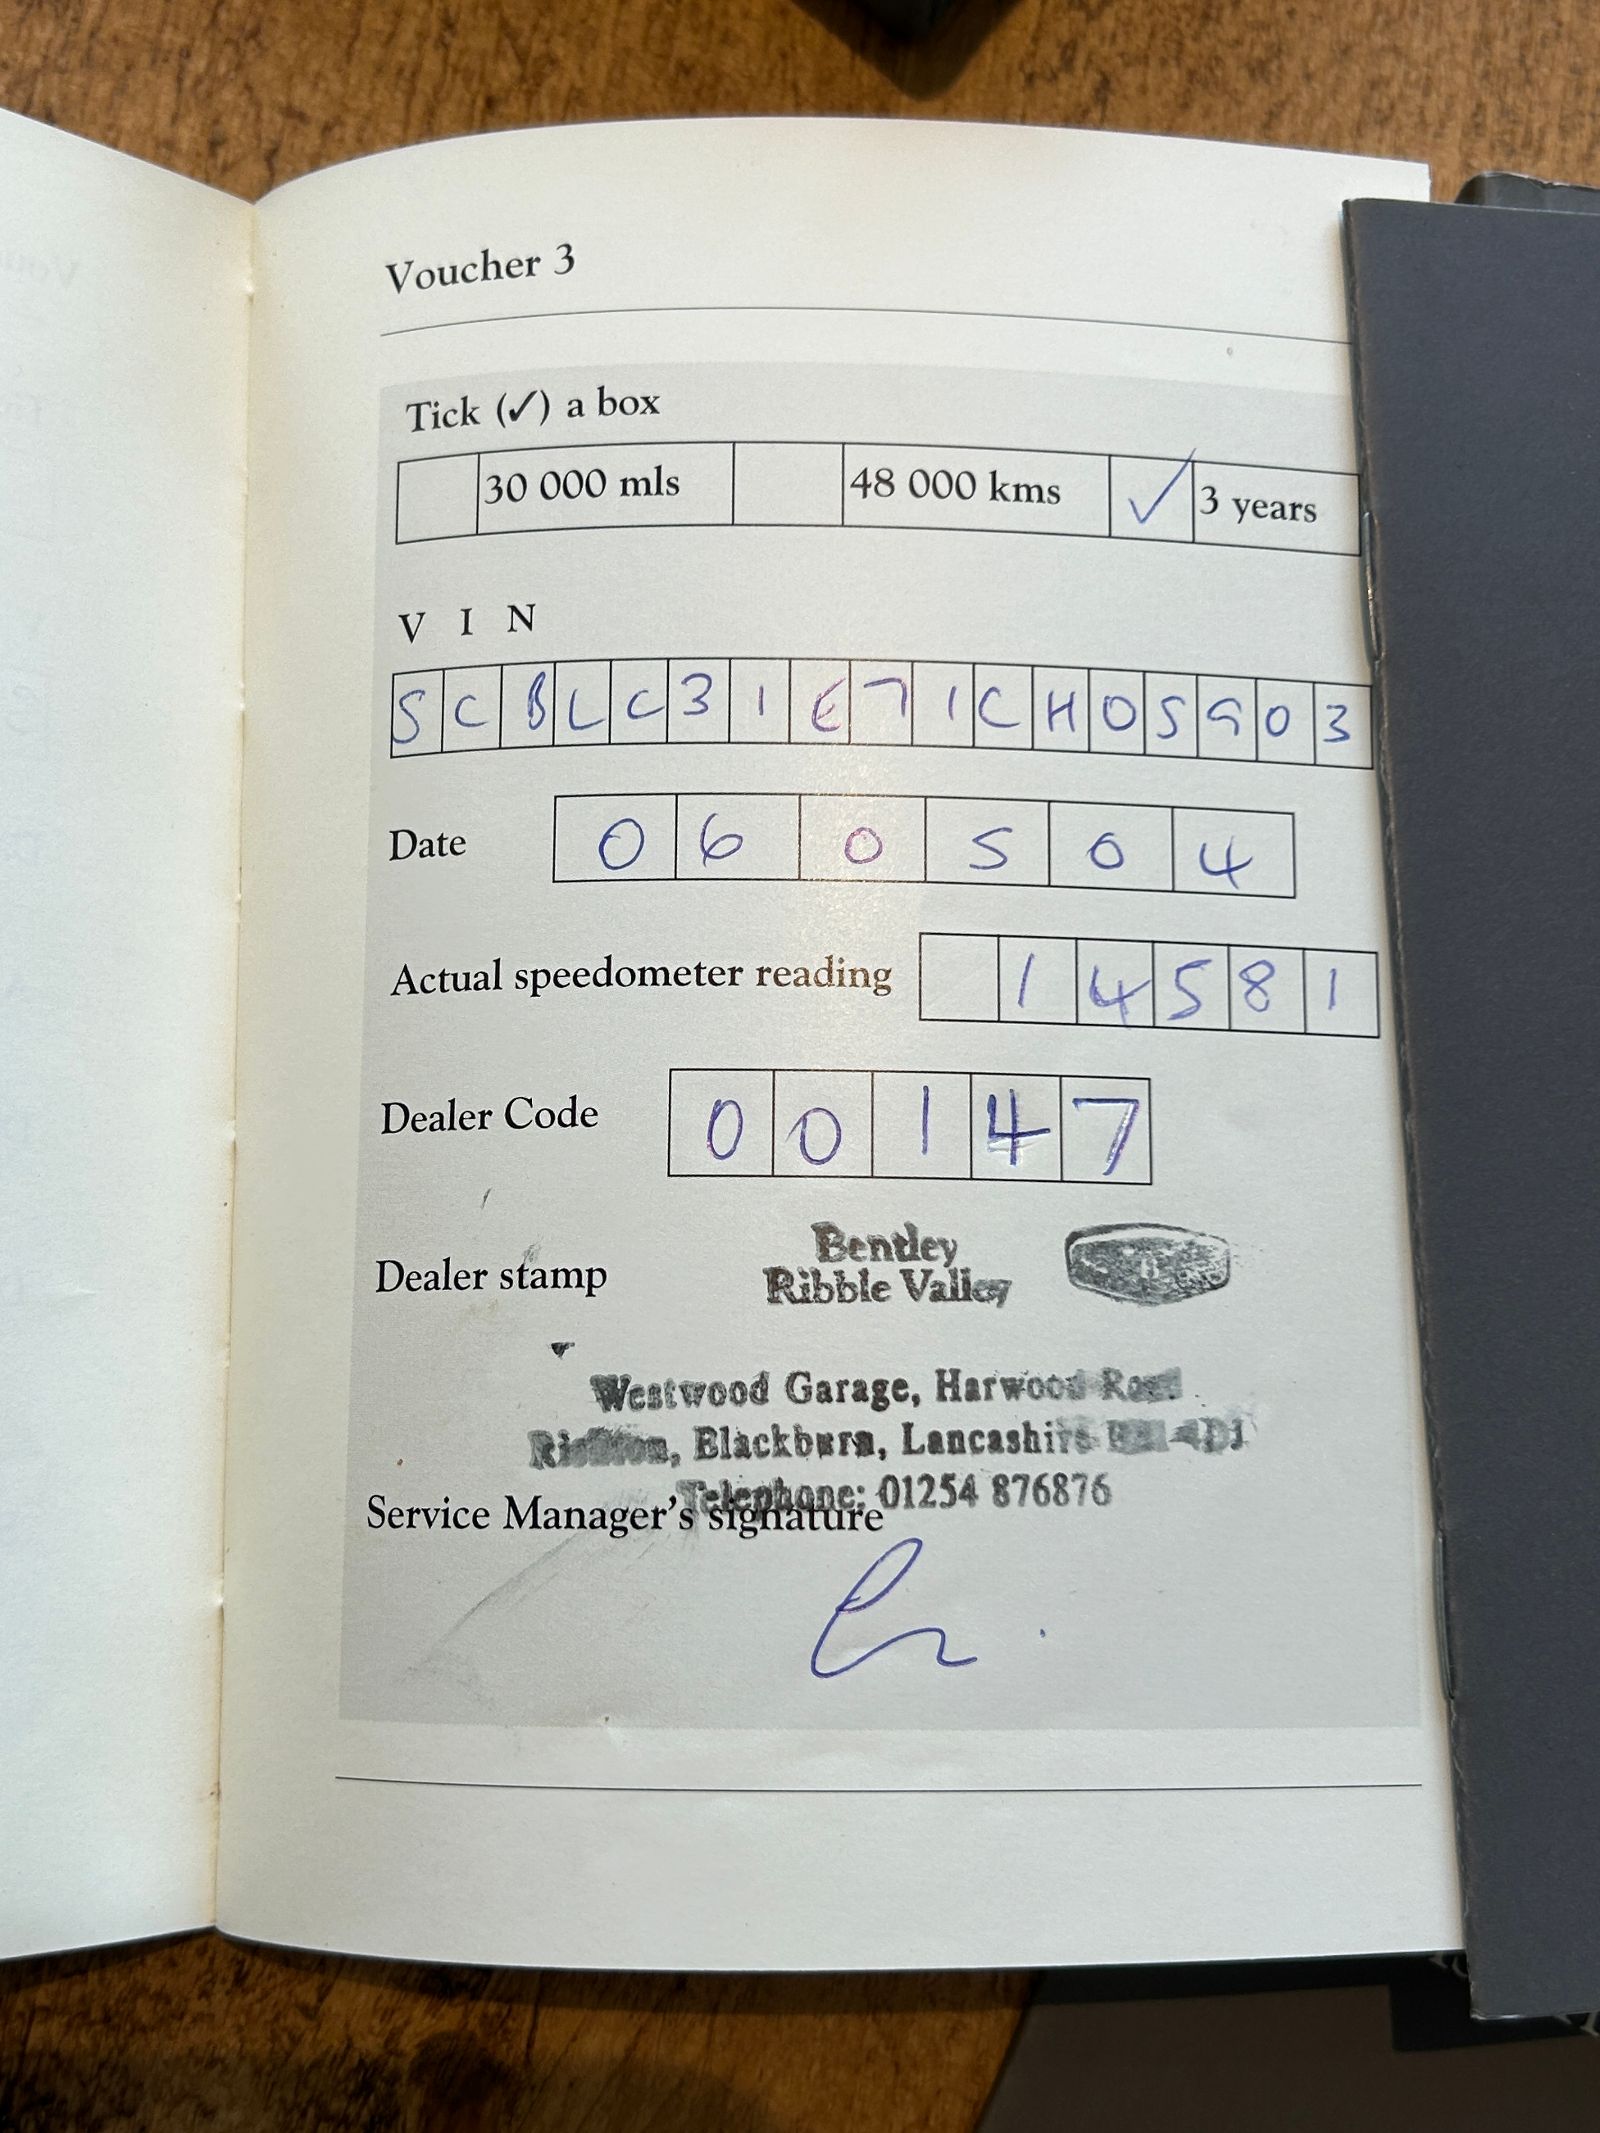 Voucher 3
Tick (✓) a box
30 000 mls 48 000 kms ✓ 3 years
V I N
S C B L C 3 1 E 7 1 C H 0 5 9 0 3
Date 0 6 0 5 0 4
Actual speedometer reading 1 4 5 8 1
Dealer Code 0 0 1 4 7
Bentley
Ribble Valley
Dealer stamp
Westwood Garage, Harwood Road
Blackburn, Lancashire
Telephone: 01254 876876
Service Manager's signature